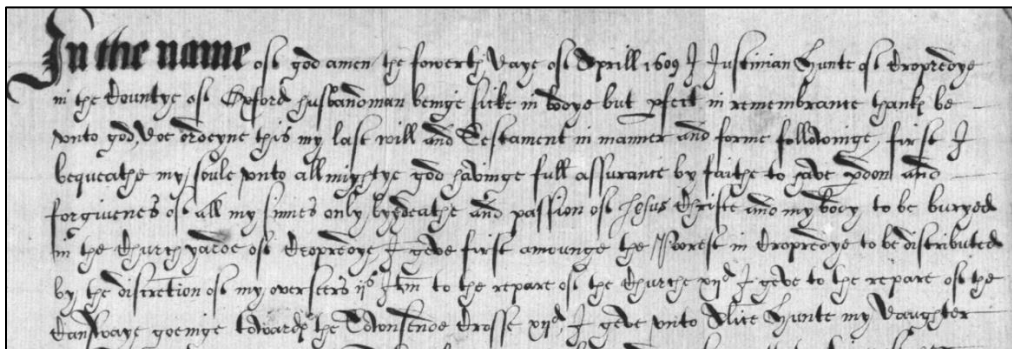 In the name of god amen the fowerth daye of Aprill 1609 I Justinian Hunte of Cropredye
in the Countye of Oxford husbandman beinge sicke in bodye but pfect in remembrance thanks be
unto god, doe ordeyne this my last will and Testament in manner and forme followinge, first I
bequeathe my soule unto allmightye god havinge full assurance by faithe to have pdon and
forgivenes of all my sinnes only by deathe and passion of Jesus Christe and my body to be buryed
in the Church yarde of Cropredye, I geve first amounge the Poorest in Cropredye to be distributed
by the discretion of my overseers ijs Itm to the repare of the Churche xijd I geve to the repare of the
Causwaye goeinge towards the Townsende Crosse xijd, I geve unto Alice Hunte my daughter